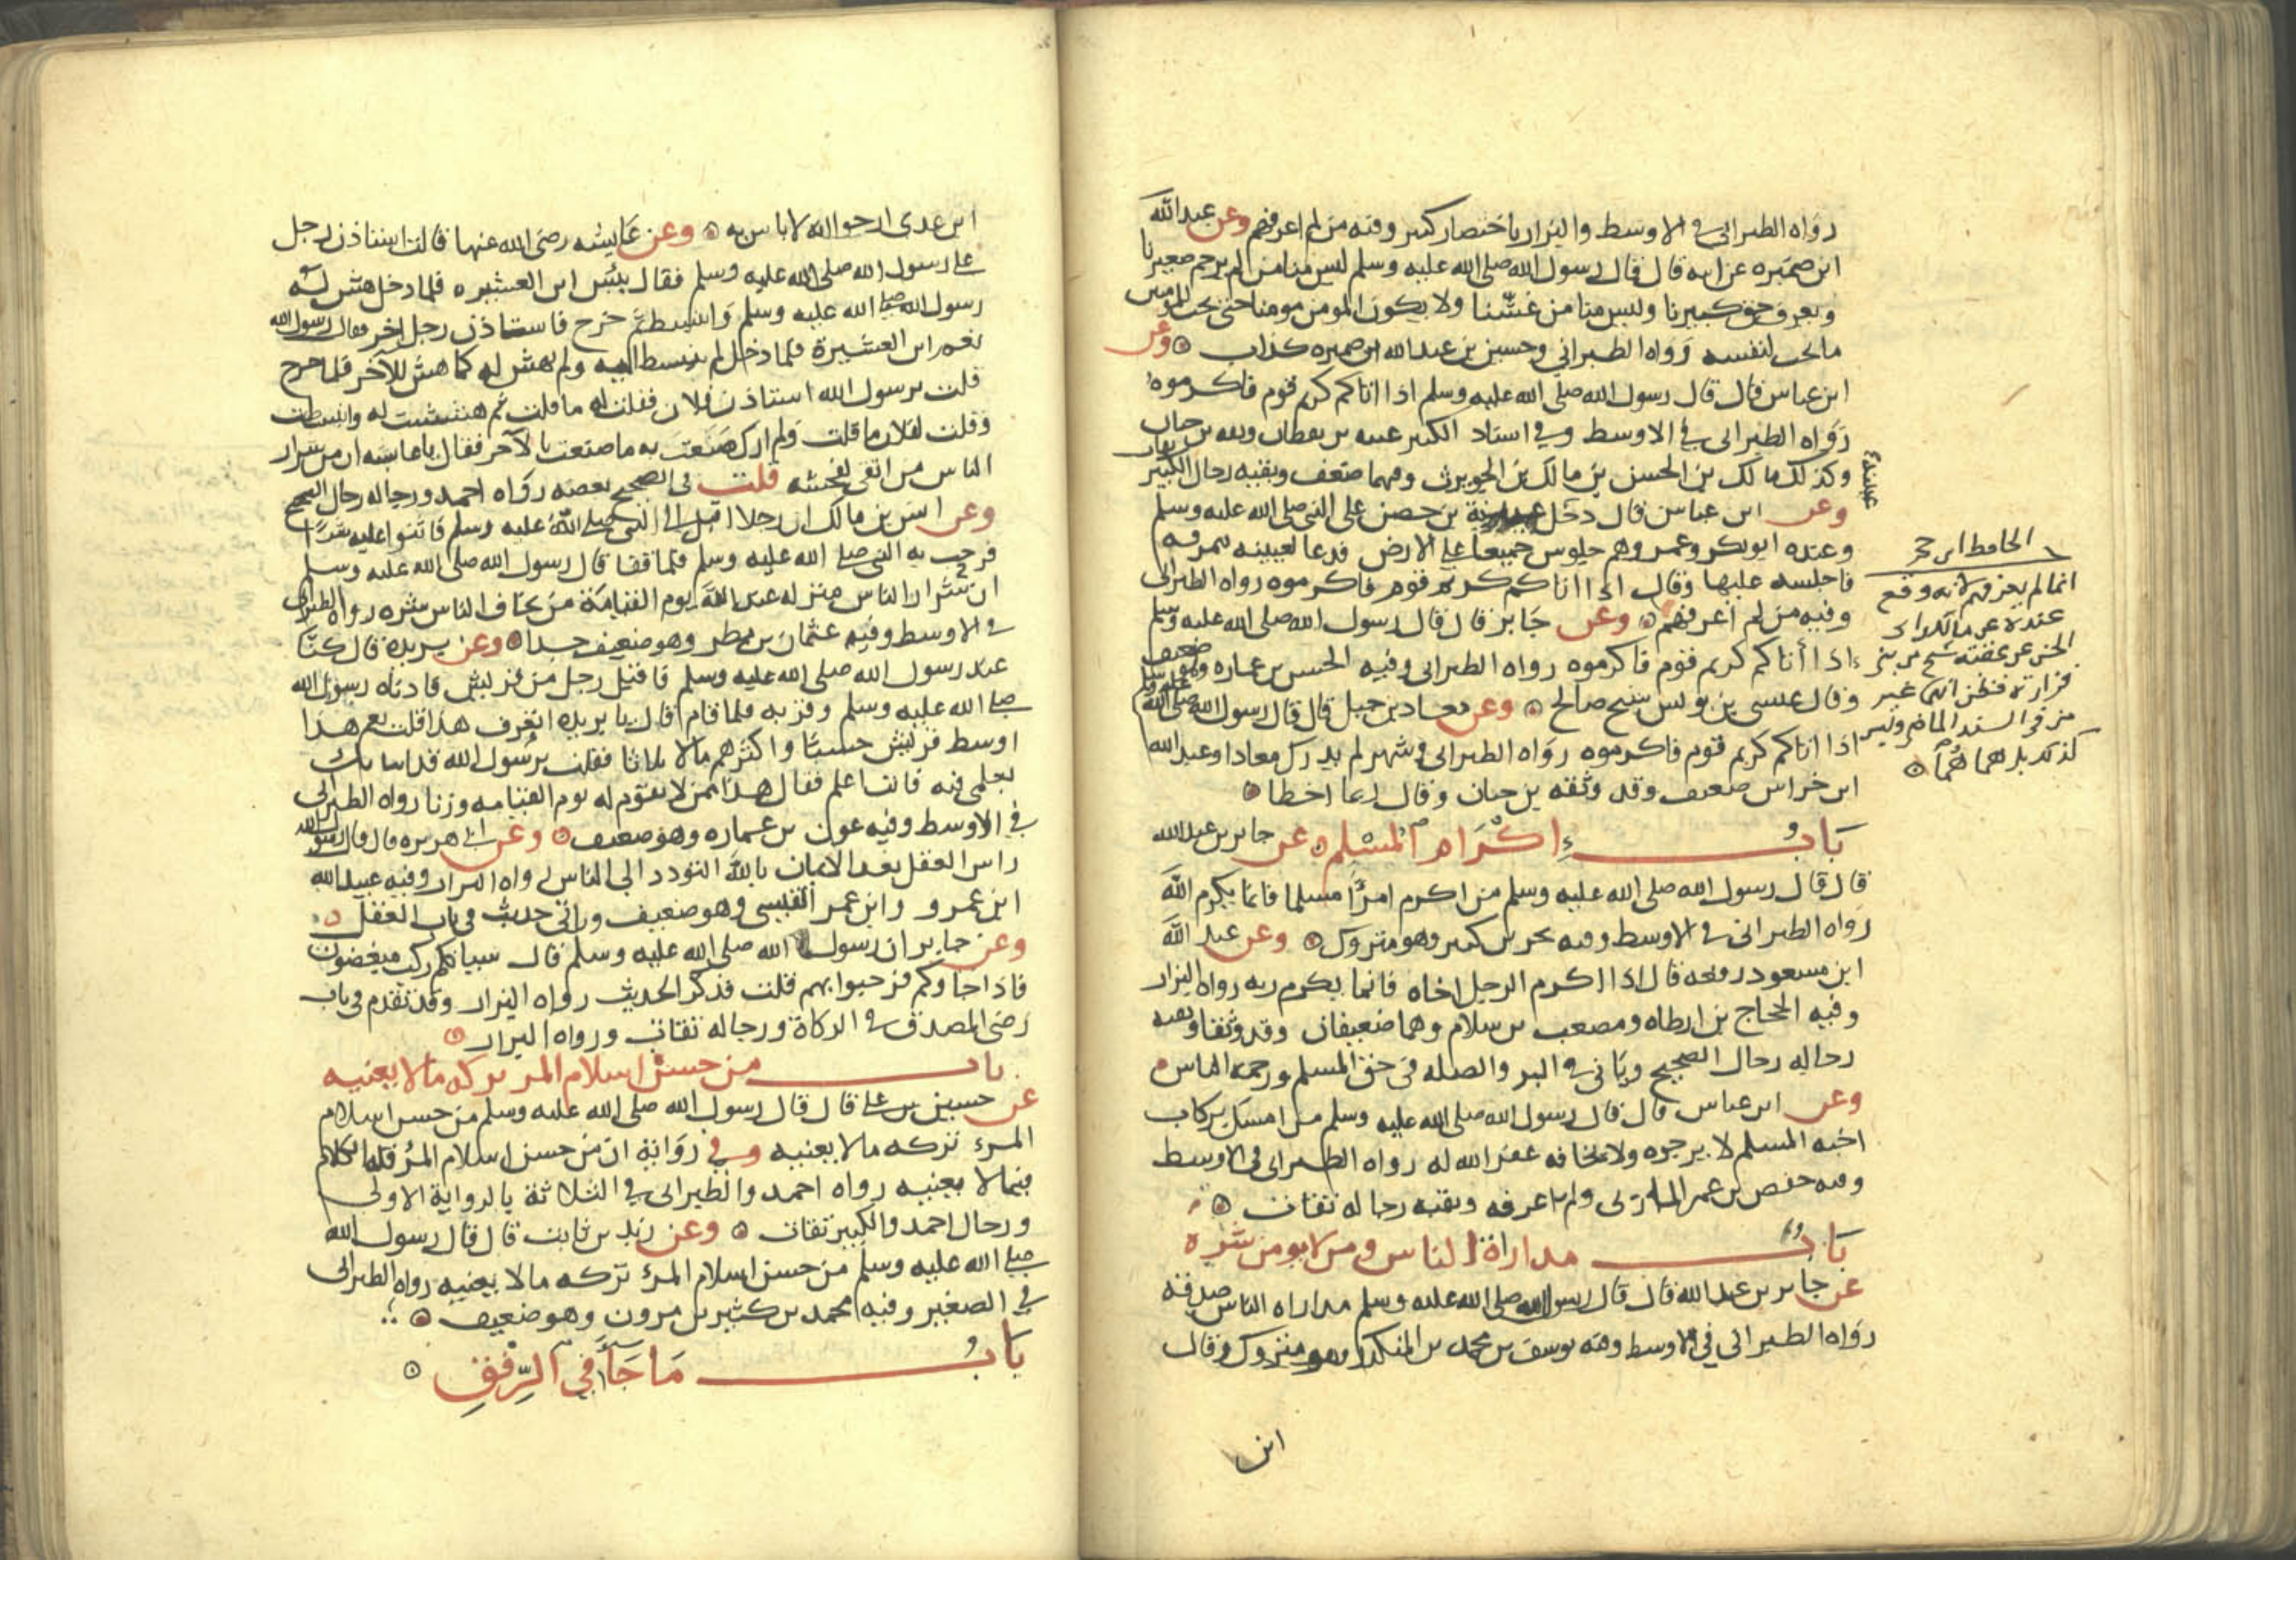 رواه الطبراني في الاوسط والبزار باختصار كبير وفيه من لم اعرفهم وعن عبد الله
ابن ضميره عن ابيه قال قال رسول الله صلى الله عليه وسلم ليس منا من لم يرحم صغيرنا
ويعرف حق كبيرنا وليس منا من غشنا ولا يكون المومن مومنا حتى يحب للمومنين
ما يحب لنفسه رواه الطبراني وحسين بن عبد الله ابن ضميره كذاب وعن
ابن عباس قال قال رسول الله صلى الله عليه وسلم اذا اتاكم كريم قوم فاكرموه
رواه الطبراني في الاوسط وفي اسناد الكبير عيينه بن يقطان وثقه بن حبان
وكذلك مالك بن الحسن بن مالك بن الحويرث وفيهما ضعف وبقيه رجال الكبير ثقات
وعن ابن عباس قال دخل عيينة بن حصن على النبي صلى الله عليه وسلم
وعنده ابو بكر وعمر وهم جلوس جميعا على الارض فدعا لعيينه بنمرقه
فاجلسه عليها وقال اذا اتاكم كريم قوم فاكرموه رواه الطبراني
وفيه من لم اعرفهم وعن جابر قال قال رسول الله صلى الله عليه وسلم
اذا أتاكم كريم قوم فاكرموه رواه الطبراني وفيه الحسن بن عماره وهو ضعيف
وقال عيسى بن يونس شيخ صالح وعن معاد بن جبل قال قال رسول الله صلى الله عليه وسلم
اذا اتاكم كريم قوم فاكرموه رواه الطبراني وشهر لم يدرك معادا وعبد الله
ابن خراش ضعيف وقد وثقه بن حبان وقال ربما اخطا
باب إكرام المسلم عن جابر بن عبد الله
قال قال رسول الله صلى الله عليه وسلم من اكرم امرأ مسلما فانما يكرم الله
رواه الطبراني في الاوسط وفيه بحر بن كنيز وهو متروك وعن عبد الله
ابن مسعود رفعه قال اذا اكرم الرجل اخاه فانما يكرم ربه رواه البزار
وفيه الحجاج بن ارطاه ومصعب بن سلام وهما ضعيفان وقد وثقا وبقيه
رجاله رجال الصحيح وياتي في البر والصله في حق المسلم ورحمه الناس
وعن ابن عباس قال قال رسول الله صلى الله عليه وسلم من امسك بركاب
اخيه المسلم لا يرجوه ولا يخافه غفر الله له رواه الطبراني في الاوسط
وفيه حفص بن عمر المازني ولم اعرفه وبقيه رجاله ثقات
باب مداراة الناس ومن لا يومن شره
عن جابر بن عبد الله قال قال رسول الله صلى الله عليه وسلم مداراه الناس صدقه
رواه الطبراني في الاوسط وفيه يوسف بن محمد بن المنكدر وهو متروك وقال
ابن
عيينة
الحافظ ابن حجر
انما لم يعرفهم لانه وقع
عنده عن مالك
الحسن عن عقبة شيخ من بني
فزارة فظن انهما غير
من في السند الماضي وليس
كذلك بل هما هما
ابن عدي ارجو انه لا باس به وعن عايشه رضى الله عنها قالت استاذن رجل
على رسول الله صلى الله عليه وسلم فقال بئس ابن العشيره فلما دخل هش له
رسول الله صلى الله عليه وسلم وانبسط ثم خرج فاستاذن رجل اخر فقال رسول الله
نعم ابن العشيرة فلما دخل لم ينبسط اليه ولم يهش له كما هش للآخر فلما خرج
قلت يرسول الله استاذن فلان فقلت له ما قلت ثم هششت له وانبسطت
وقلت لفلان ما قلت ولم ارك صنعت به ما صنعت بالآخر فقال يا عايشه ان من شرار
الناس من اتقى لفحشه قلت في الصحيح بعضه رواه احمد ورجاله رجال الصحيح
وعن انس بن مالك ان رجلا اقبل الى النبي صلى الله عليه وسلم فاثنوا عليه شرا
فرحب به النبي صلى الله عليه وسلم فلما قفا قال رسول الله صلى الله عليه وسلم
ان شرار الناس منزله عند الله يوم القيامة من يخاف الناس شره رواه الطبراني
في الاوسط وفيه عثمان بن مطر وهو ضعيف جدا وعن بريده قال كنا
عند رسول الله صلى الله عليه وسلم فاقبل رجل من قريش فادناه رسول الله
صلى الله عليه وسلم وقربه فلما قام قال يا بريده اتعرف هذا قلت نعم هذا
اوسط قريش حسبا واكثرهم مالا ثلاثا فقلت يرسول الله قد انباتك
بعلمي فيه فانت اعلم فقال هذا ممن لا يقوم له يوم القيامه وزنا رواه الطبراني
في الاوسط وفيه عون بن عماره وهو ضعيف وعن ابي هريره قال قال رسول الله
راس العقل بعد الايمان بالله التودد الى الناس رواه البزار وفيه عبيد الله
ابن عمرو وابن عمر القيسي وهو ضعيف وياتي حديث في باب العقل
وعن جابر ان رسول الله صلى الله عليه وسلم قال سياتيكم ركب مبغضون
فاذا جاوكم فرحبوا بهم قلت فذكر الحديث رواه البزار وقد تقدم في باب
رضى المصدق في الزكاة ورجاله ثقات ورواه البزار
باب من حسن اسلام المر تركه ما لا يعنيه
عن حسين بن على قال قال رسول الله صلى الله عليه وسلم من حسن اسلام
المرء تركه ما لا يعنيه وفي رواية ان من حسن اسلام المرء قلة الكلام
فيما لا يعنيه رواه احمد والطبراني في الثلاثة بالرواية الاولى
ورجال احمد والكبير ثقات وعن زيد بن ثابت قال قال رسول الله
صلى الله عليه وسلم من حسن اسلام المرء تركه ما لا يعنيه رواه الطبراني
في الصغير وفيه محمد بن كثير بن مرون وهو ضعيف
باب ما جاء في الرفق